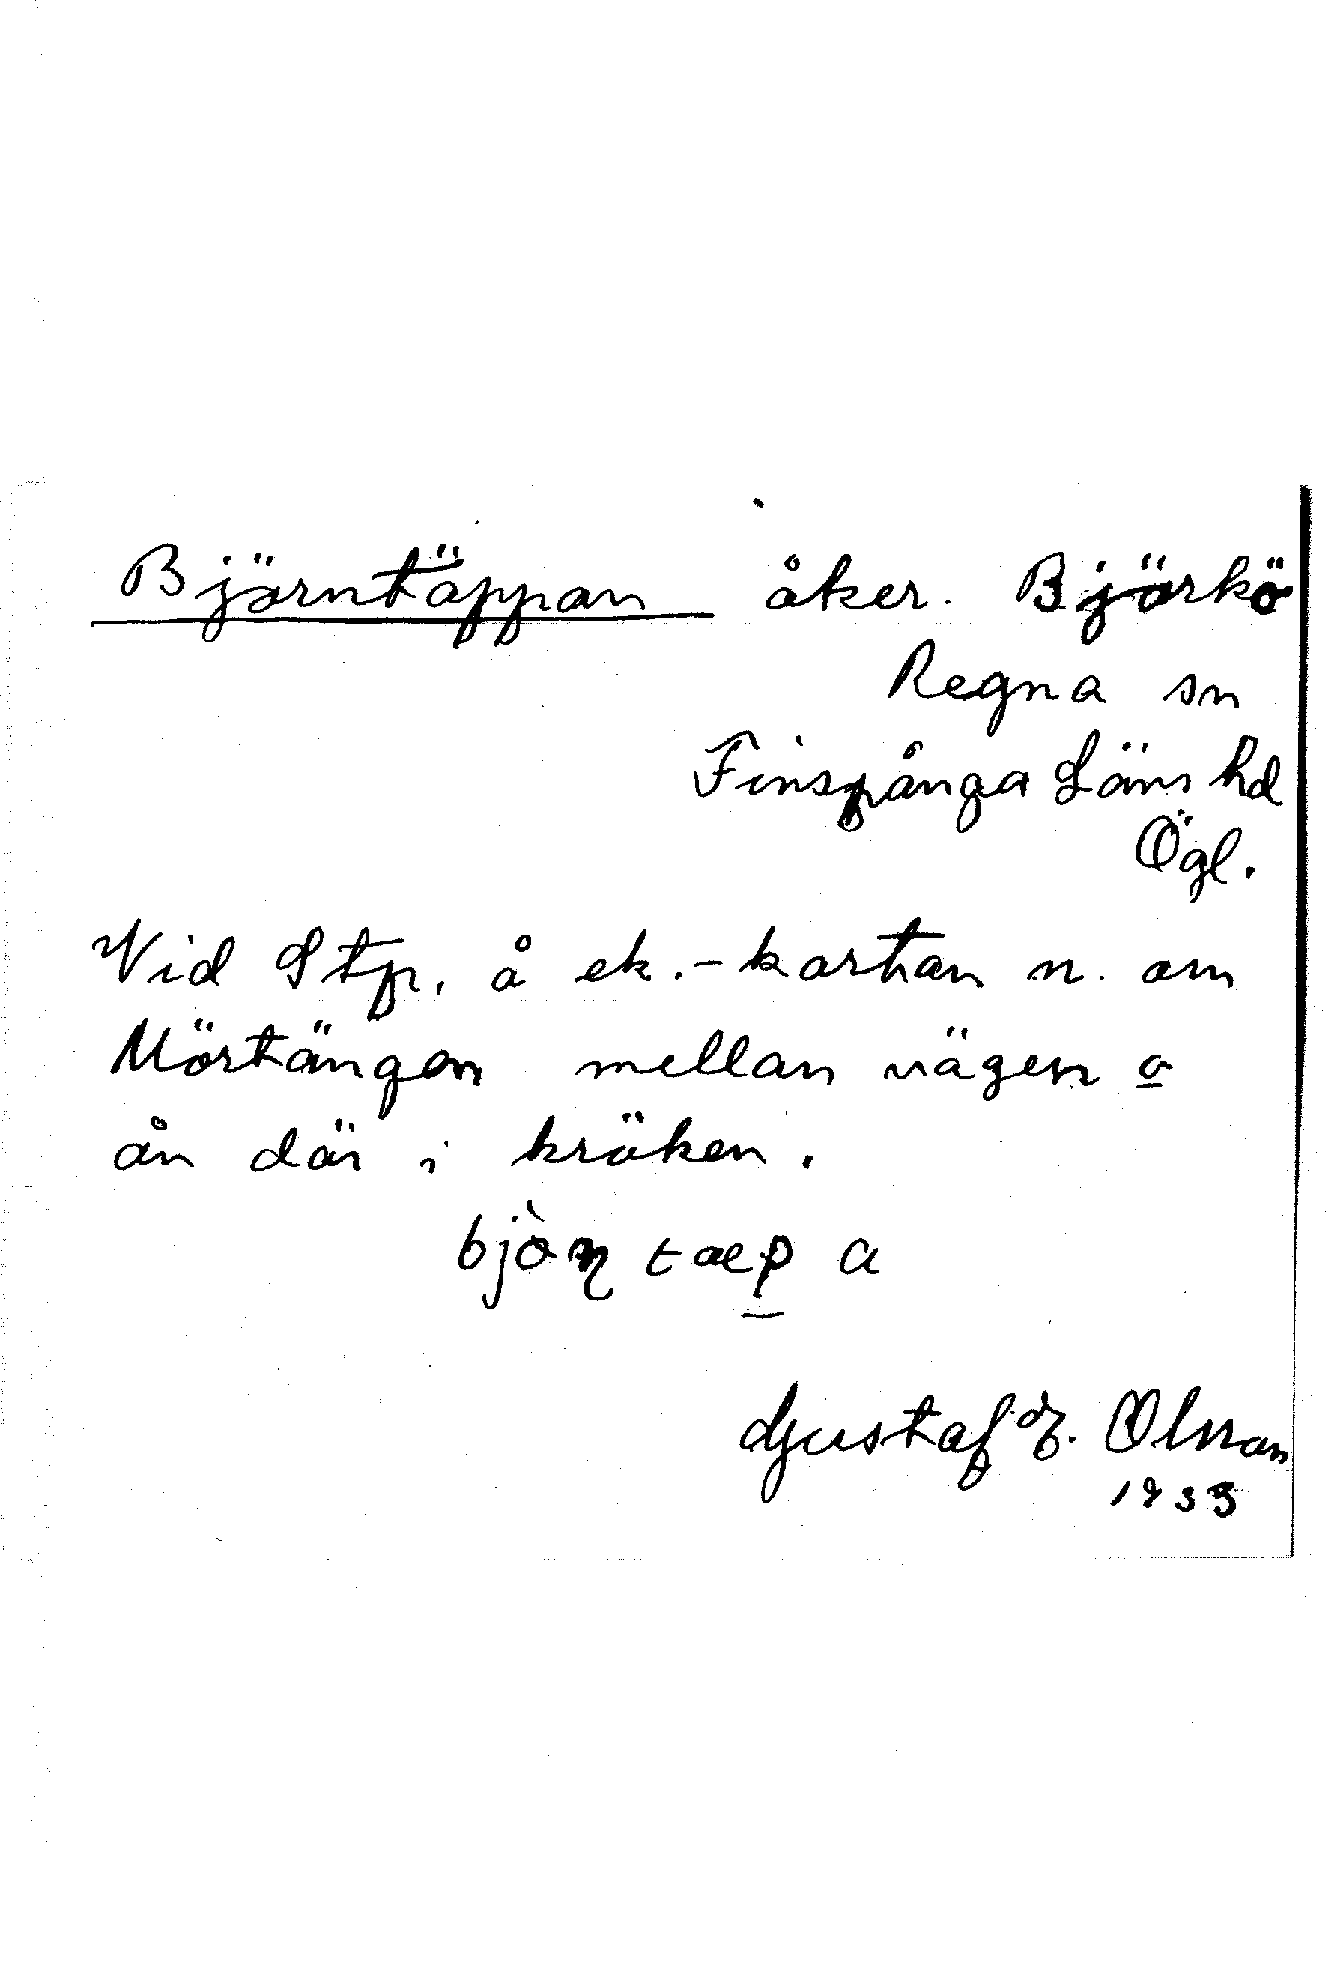 Björntäppan åker. Björkö
Regna sn
Finspånga Läns hd
Ögl.
Vid Stp. å ek.-kartan n. om
Mörtängen mellan vägen o
ån där i kröken.
bjò̀ɳtæp̲a
Gustaf Olsson
1933